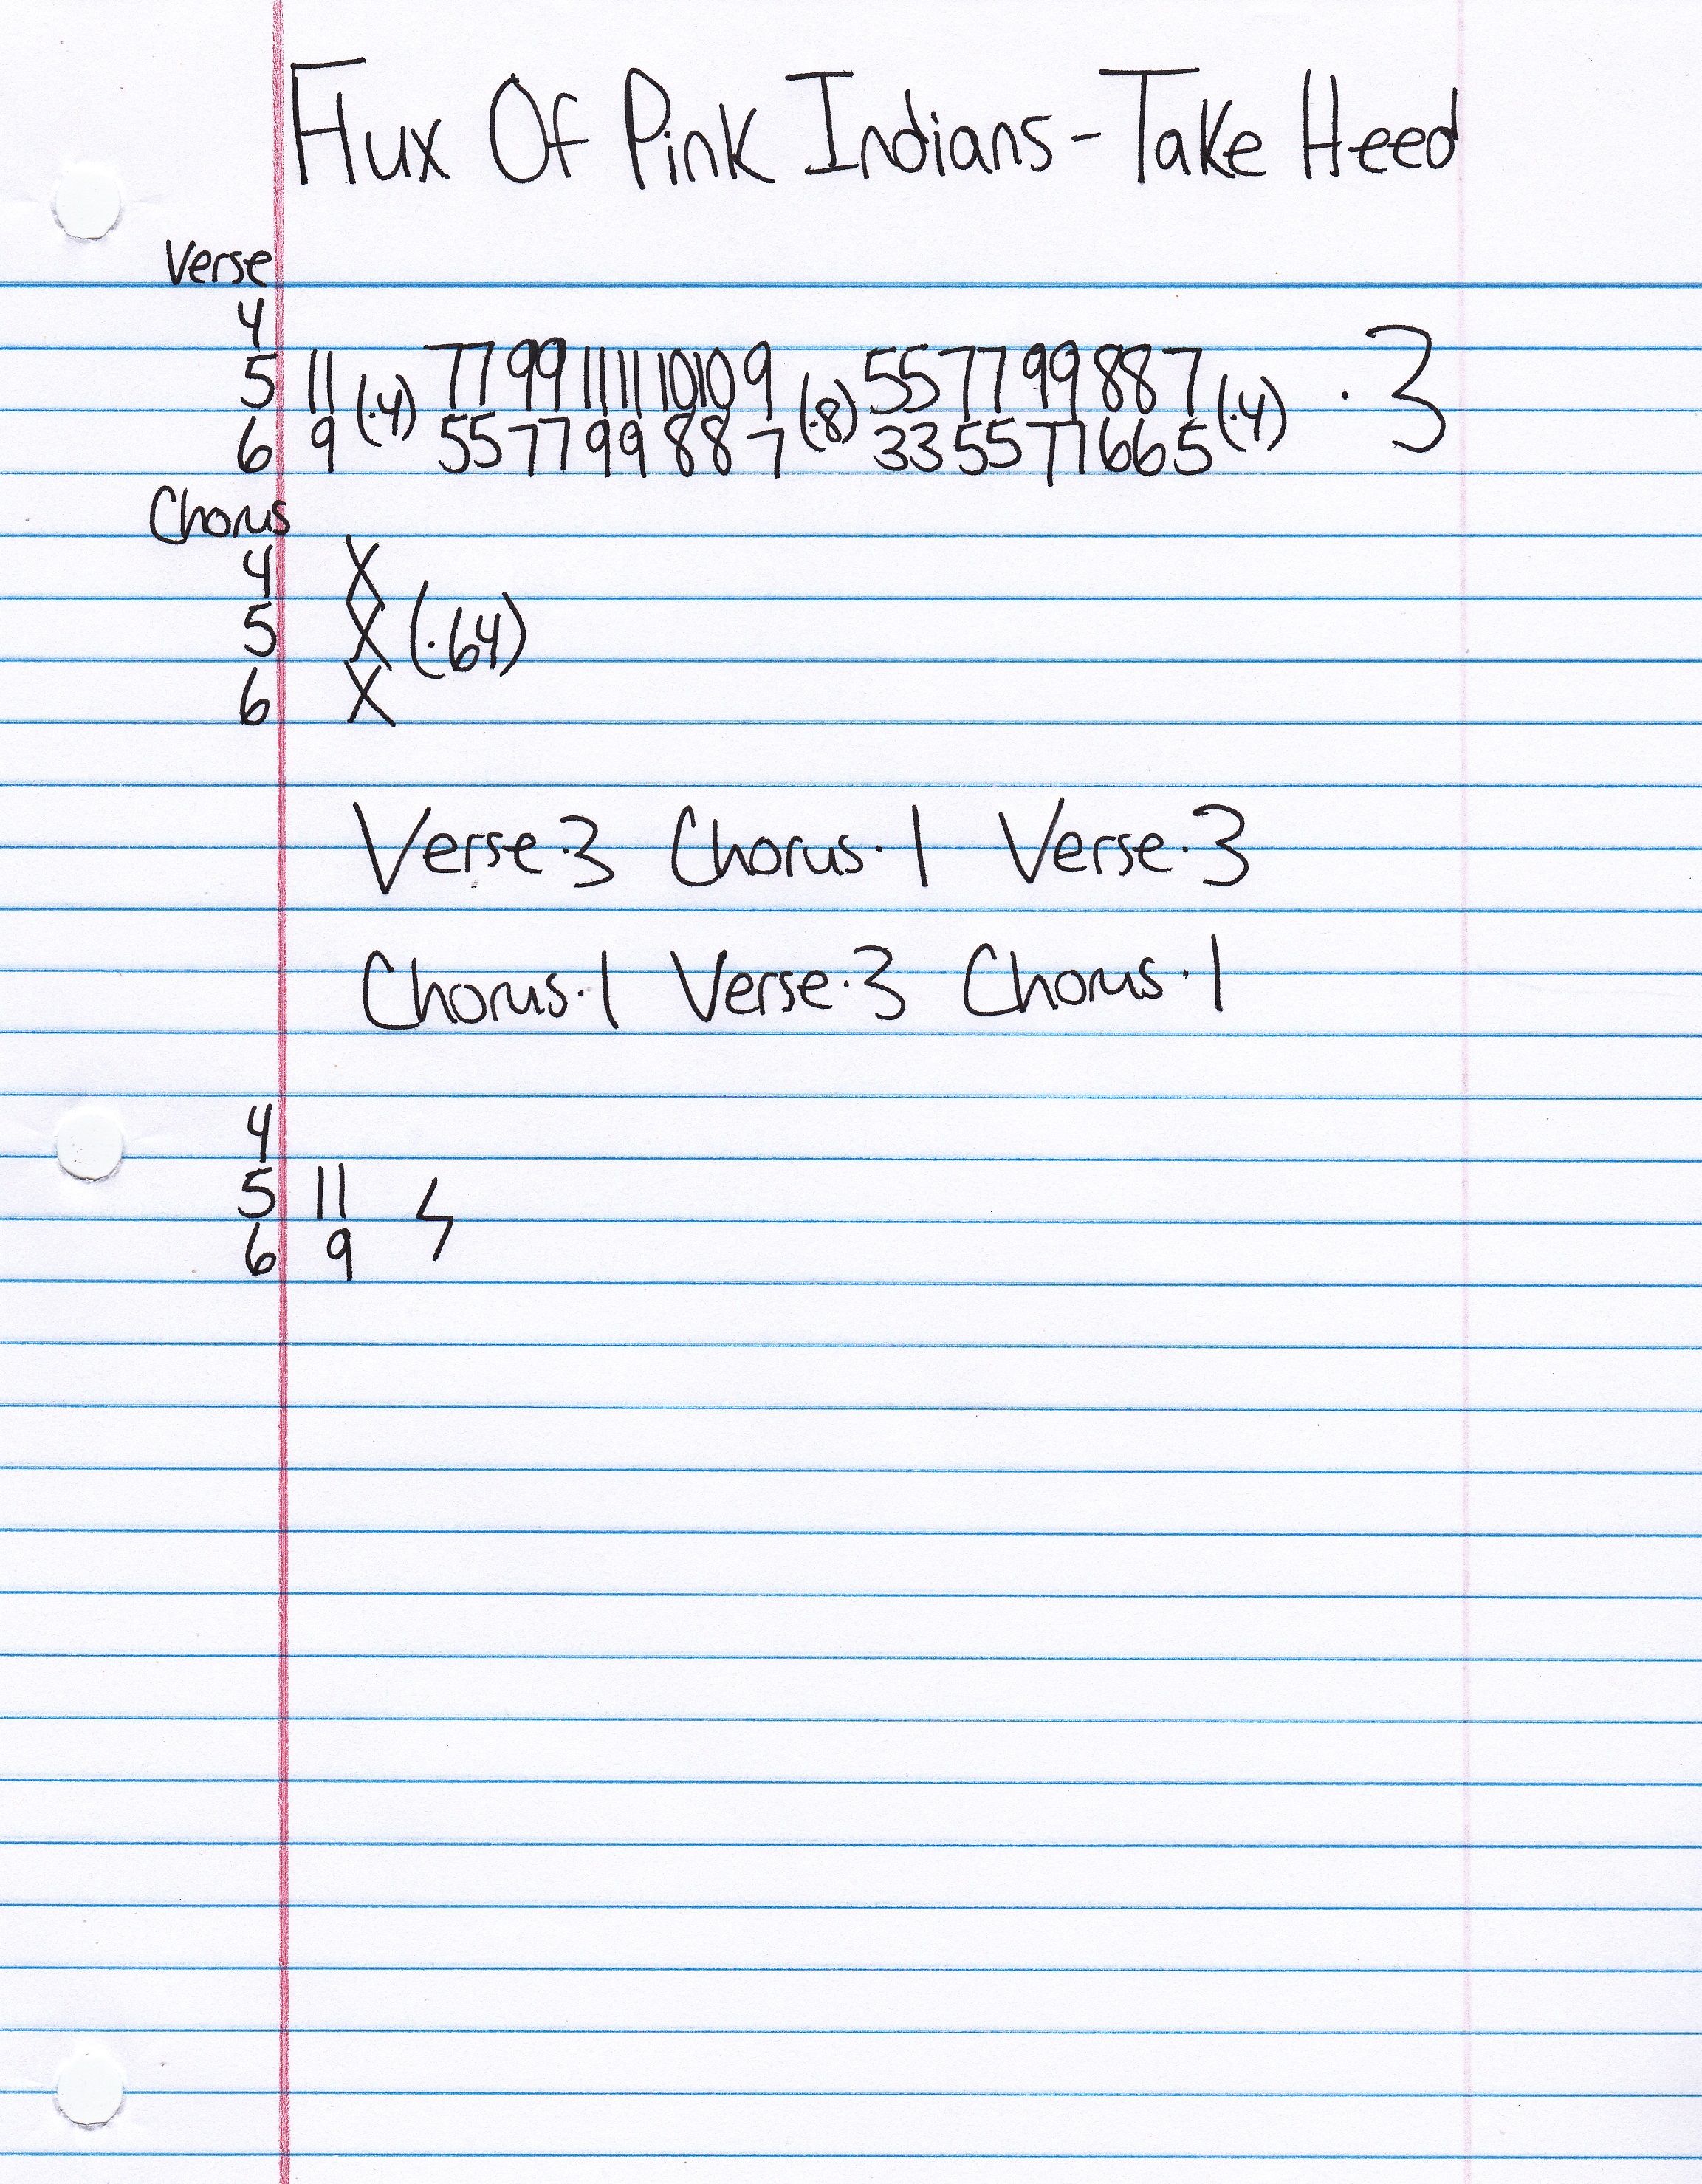 Flux Of Pink Indians - Take Heed
Verse
4
5 11 (·4) 77 99 11 11 10 10 9 (·8) 55 77 99 88 7 (·4) · 3
6 9 55 77 99 88 7 33 55 77 66 5
Chorus
4 X
5 X (·64)
6 X
Verse·3 Chorus·1 Verse·3
Chorus·1 Verse·3 Chorus·1
4
5 11
6 9